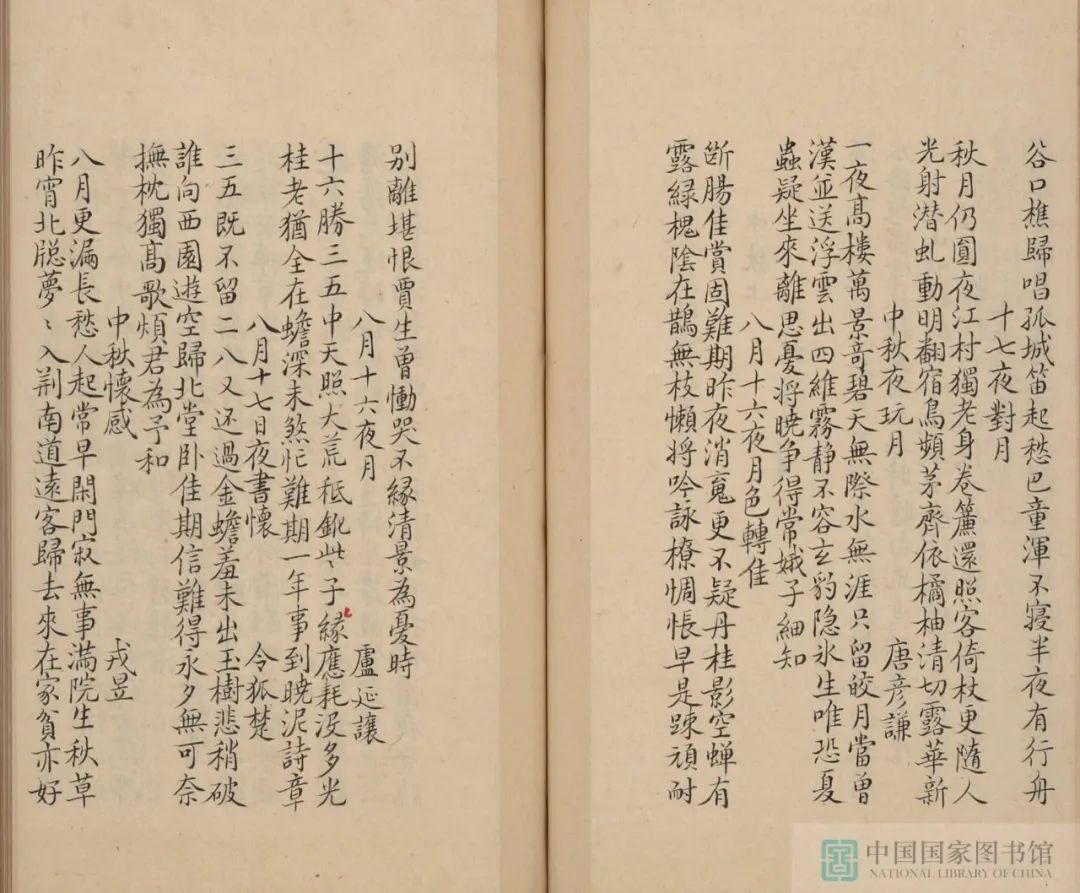 谷口樵歸唱孤城笛起愁巴童渾不寝半夜有行舟
十七夜對月
秋月仍圓夜江村獨老身卷簾還照客倚杖更隨人
光射潜虬動明翻宿鳥頻茅齊依橘柚清切露華新
中秋夜玩月 唐彦謙
一夜髙樓萬景竒碧天無際水無涯只留皎月當曽
漢並送浮雲出四維霧静不容玄豹隐氷生唯恐夏
蟲疑坐來離思憂將曉争得常娥子細知
八月十六夜月色轉佳
斷腸佳賞固難期昨夜消䰟更不疑丹桂影空蟬有
露緑槐隂在鵲無枝懶將吟詠撩惆悵早是踈頑耐
别離堪恨賈生曽慟哭不縁清景為憂時
八月十六夜月 盧延讓
十六勝三五中天照大荒秪訛些子縁應耗没多光
桂老猶全在蟾深未煞忙難期一年事到曉泥詩章
八月十七日夜書懷 令狐楚
三五既不留二八又还過金蟾羞未出玉樹悲稍破
誰向西園遊空歸北堂卧佳期信難得永夕無可奈
撫枕獨髙歌煩君為予和
中秋懷感 戎昱
八月更漏長愁人起常早閑門寂無事滿院生秋草
昨宵北牕夢〻入荆南道遠客歸去來在家貧亦好
中国国家图书馆
NATIONAL LIBRARY OF CHINA